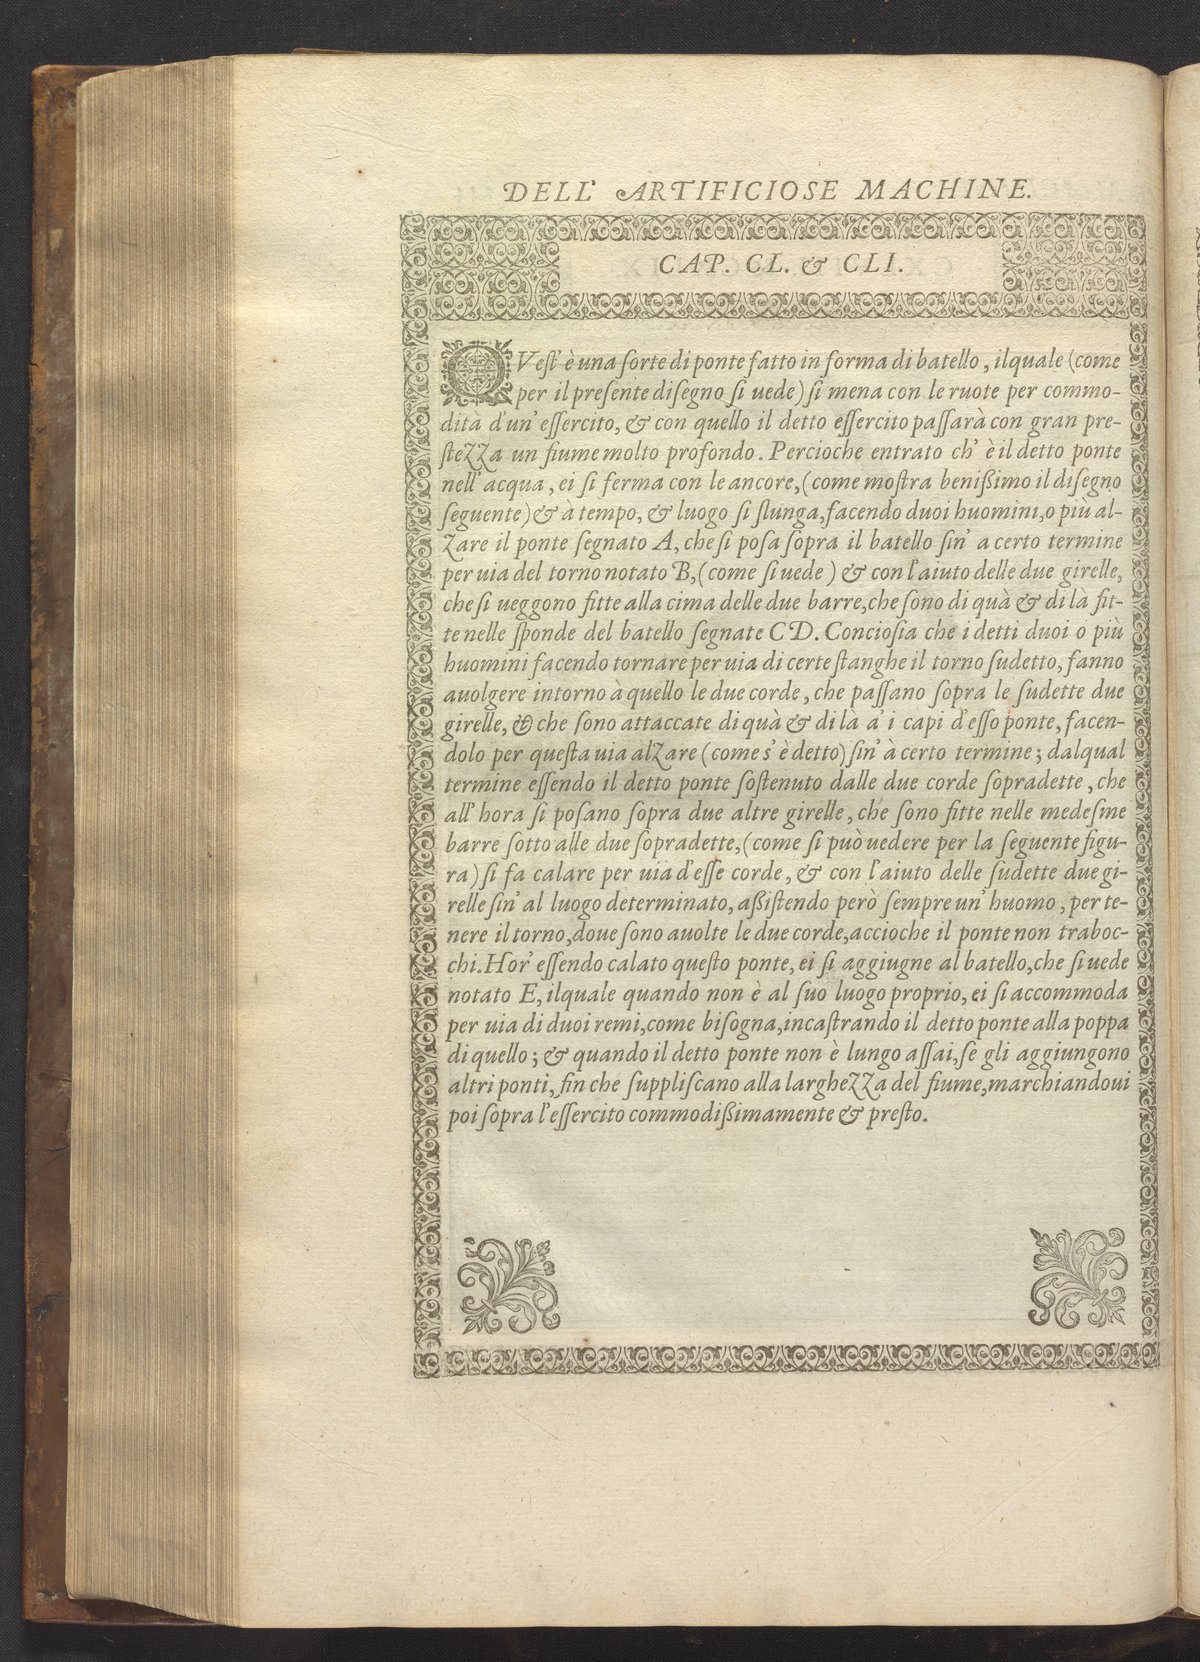 DELL' ARTIFICIOSE MACHINE.
CAP. CL. & CLI.
QVest' è una sorte di ponte fatto in forma di batello, ilquale (come
per il presente disegno si uede) si mena con le ruote per commo-
dità d'un' essercito, & con quello il detto essercito passarà con gran pre-
stezza un fiume molto profondo. Percioche entrato ch' è il detto ponte
nell' acqua, ei si ferma con le ancore, (come mostra benißimo il disegno
seguente) & à tempo, & luogo si slunga, facendo duoi huomini, o più al-
zare il ponte segnato A, che si posa sopra il batello sin' a certo termine
per uia del torno notato B, (come si uede) & con l'aiuto delle due girelle,
che si ueggono fitte alla cima delle due barre, che sono di quà & di là fit-
te nelle sponde del batello segnate CD. Conciosia che i detti duoi o più
huomini facendo tornare per uia di certe stanghe il torno sudetto, fanno
auolgere intorno à quello le due corde, che passano sopra le sudette due
girelle, & che sono attaccate di quà & di là a' i capi d'esso ponte, facen-
dolo per questa uia alzare (come s' è detto) sin' à certo termine; dalqual
termine essendo il detto ponte sostenuto dalle due corde sopradette, che
all' hora si posano sopra due altre girelle, che sono fitte nelle medesme
barre sotto alle due sopradette, (come si può uedere per la seguente figu-
ra) si fa calare per uia d'esse corde, & con l'aiuto delle sudette due gi-
relle sin' al luogo determinato, aßistendo però sempre un' huomo, per te-
nere il torno, doue sono auolte le due corde, accioche il ponte non traboc-
chi. Hor' essendo calato questo ponte, ei si aggiugne al batello, che si uede
notato E, ilquale quando non è al suo luogo proprio, ei si accommoda
per uia di duoi remi, come bisogna, incastrando il detto ponte alla poppa
di quello; & quando il detto ponte non è lungo assai, se gli aggiungono
altri ponti, fin che suppliscano alla larghezza del fiume, marchiandoui
poi sopra l'essercito commodißimamente & presto.